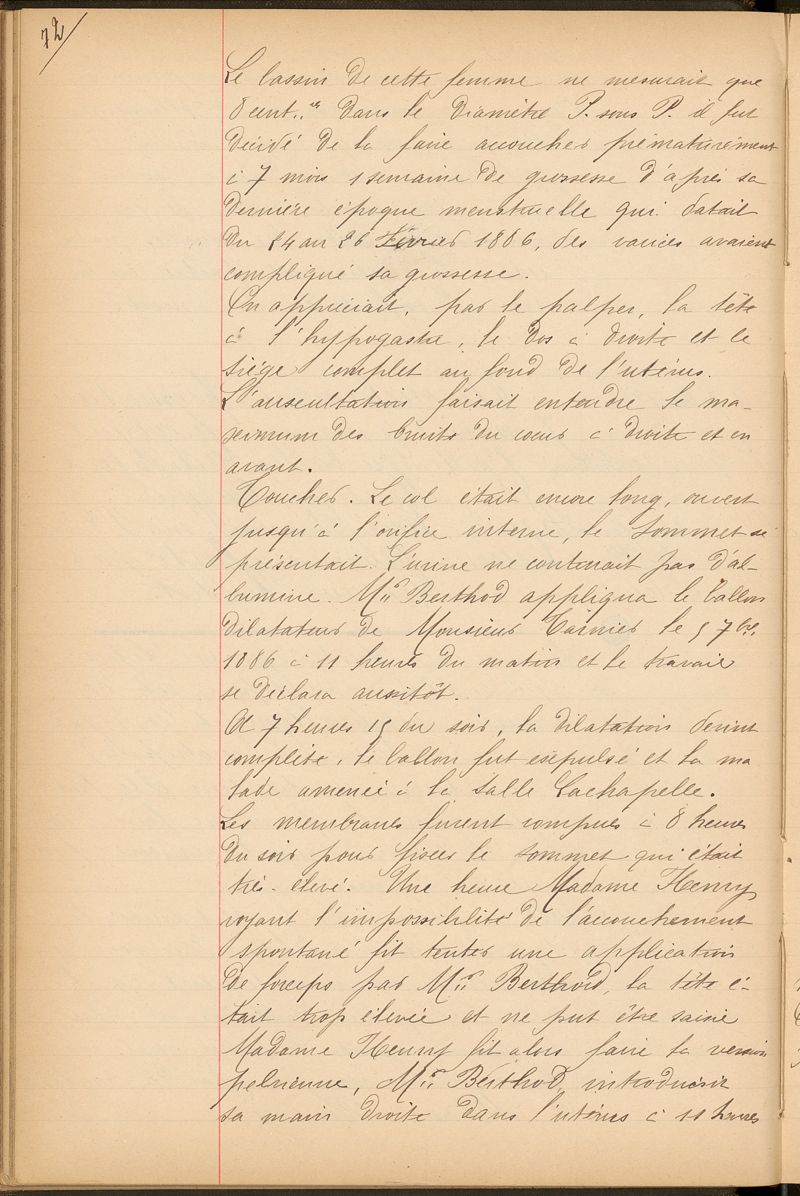 72
Le bassin de cette femme ne mesurait que
8 cent. dans le diamètre P. sous P. il fut
décidé de la faire accoucher prématurément
à 7 mois 1 semaine de grossesse d'après sa
dernière époque menstruelle qui datait
du 24 au 26 Février 1886, des varices avaient
compliqué sa grossesse.
On appréciait, par le palper, la tête
à l'hypogastre, le dos à droite et le
siège complet au fond de l'utérus.
L'auscultation faisait entendre le ma-
ximum des bruits du cœur à droite et en
avant.
Toucher. Le col était encore long, ouvert
jusqu'à l'orifice interne, le sommet se
présentait. L'urine ne contenait pas d'al-
bumine. Berthod appliqua le ballon
dilatateur de Monsieur Tarnier le 5 7bre
1886 à 11 heures du matin et le travail
se déclara aussitôt.
A 7 heures 15 du soir, la dilatation devint
complète, le ballon fut expulsé et la ma
lade amenée à la salle Lachapelle.
Les membranes furent rompues à 8 heures
du soir pour fixer le sommet qui était
très-élevé. Une heure Madame Henry
voyant l'impossibilité de l'accouchement
spontané fit tenter une application
de forceps par Berthod, la tête é-
tait trop élevée et ne put être saisie
Madame Henry fit alors faire la version
pelvienne, Berthod, introduisit
sa main droite dans l'utérus à 11 heures